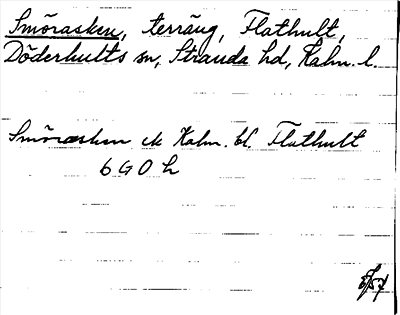 Smörasken, terräng, Flathult,
Döderhults sn, Stranda hd, Kalm. l.
Smörasken ek Kalm. bl. Flathult
6 G 0 h